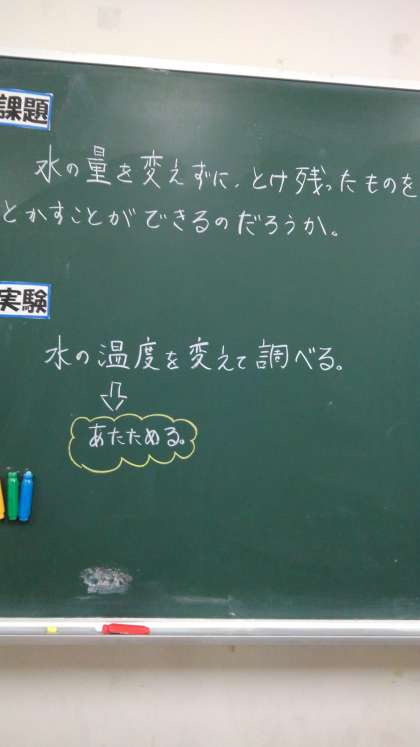 課題
水の量を変えずに、とけ残ったものを
とかすことができるのだろうか。
実験
水の温度を変えて調べる。
あたためる。